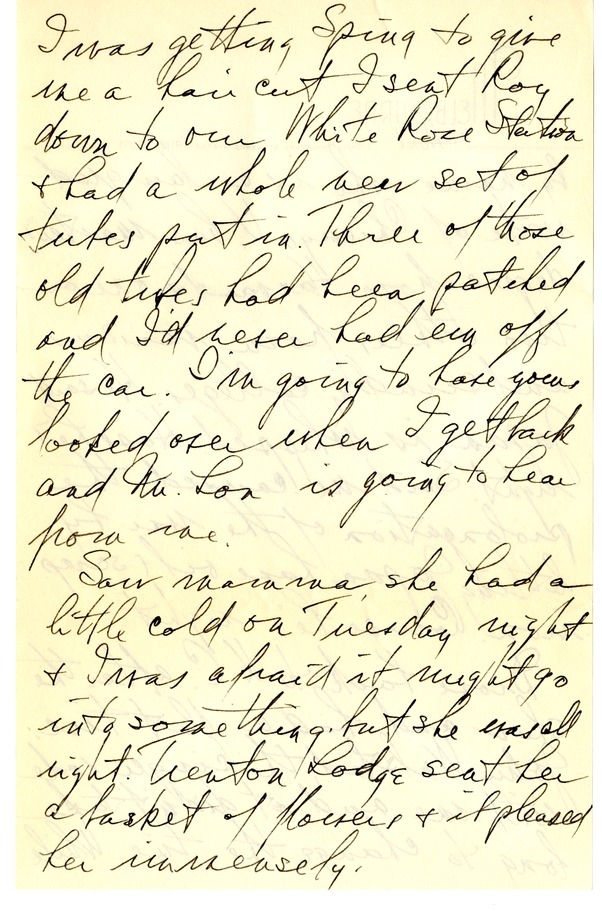 I was getting Sping to give
me a hair cut I sent Roy
down to our White Rose Station
& had a whole new set of
tubes put in. Three of those
old tubes had been patched
and I'd never had em off
the car. I'm going to have yours
looked over when I get back
and Mr. Lon is going to hear
from me.
Saw mamma, she had a
little cold on Tuesday night
& I was afraid it might go
into something. but she was all
right. Trenton Lodge sent her
a basket of flowers & it pleased
her immensely.